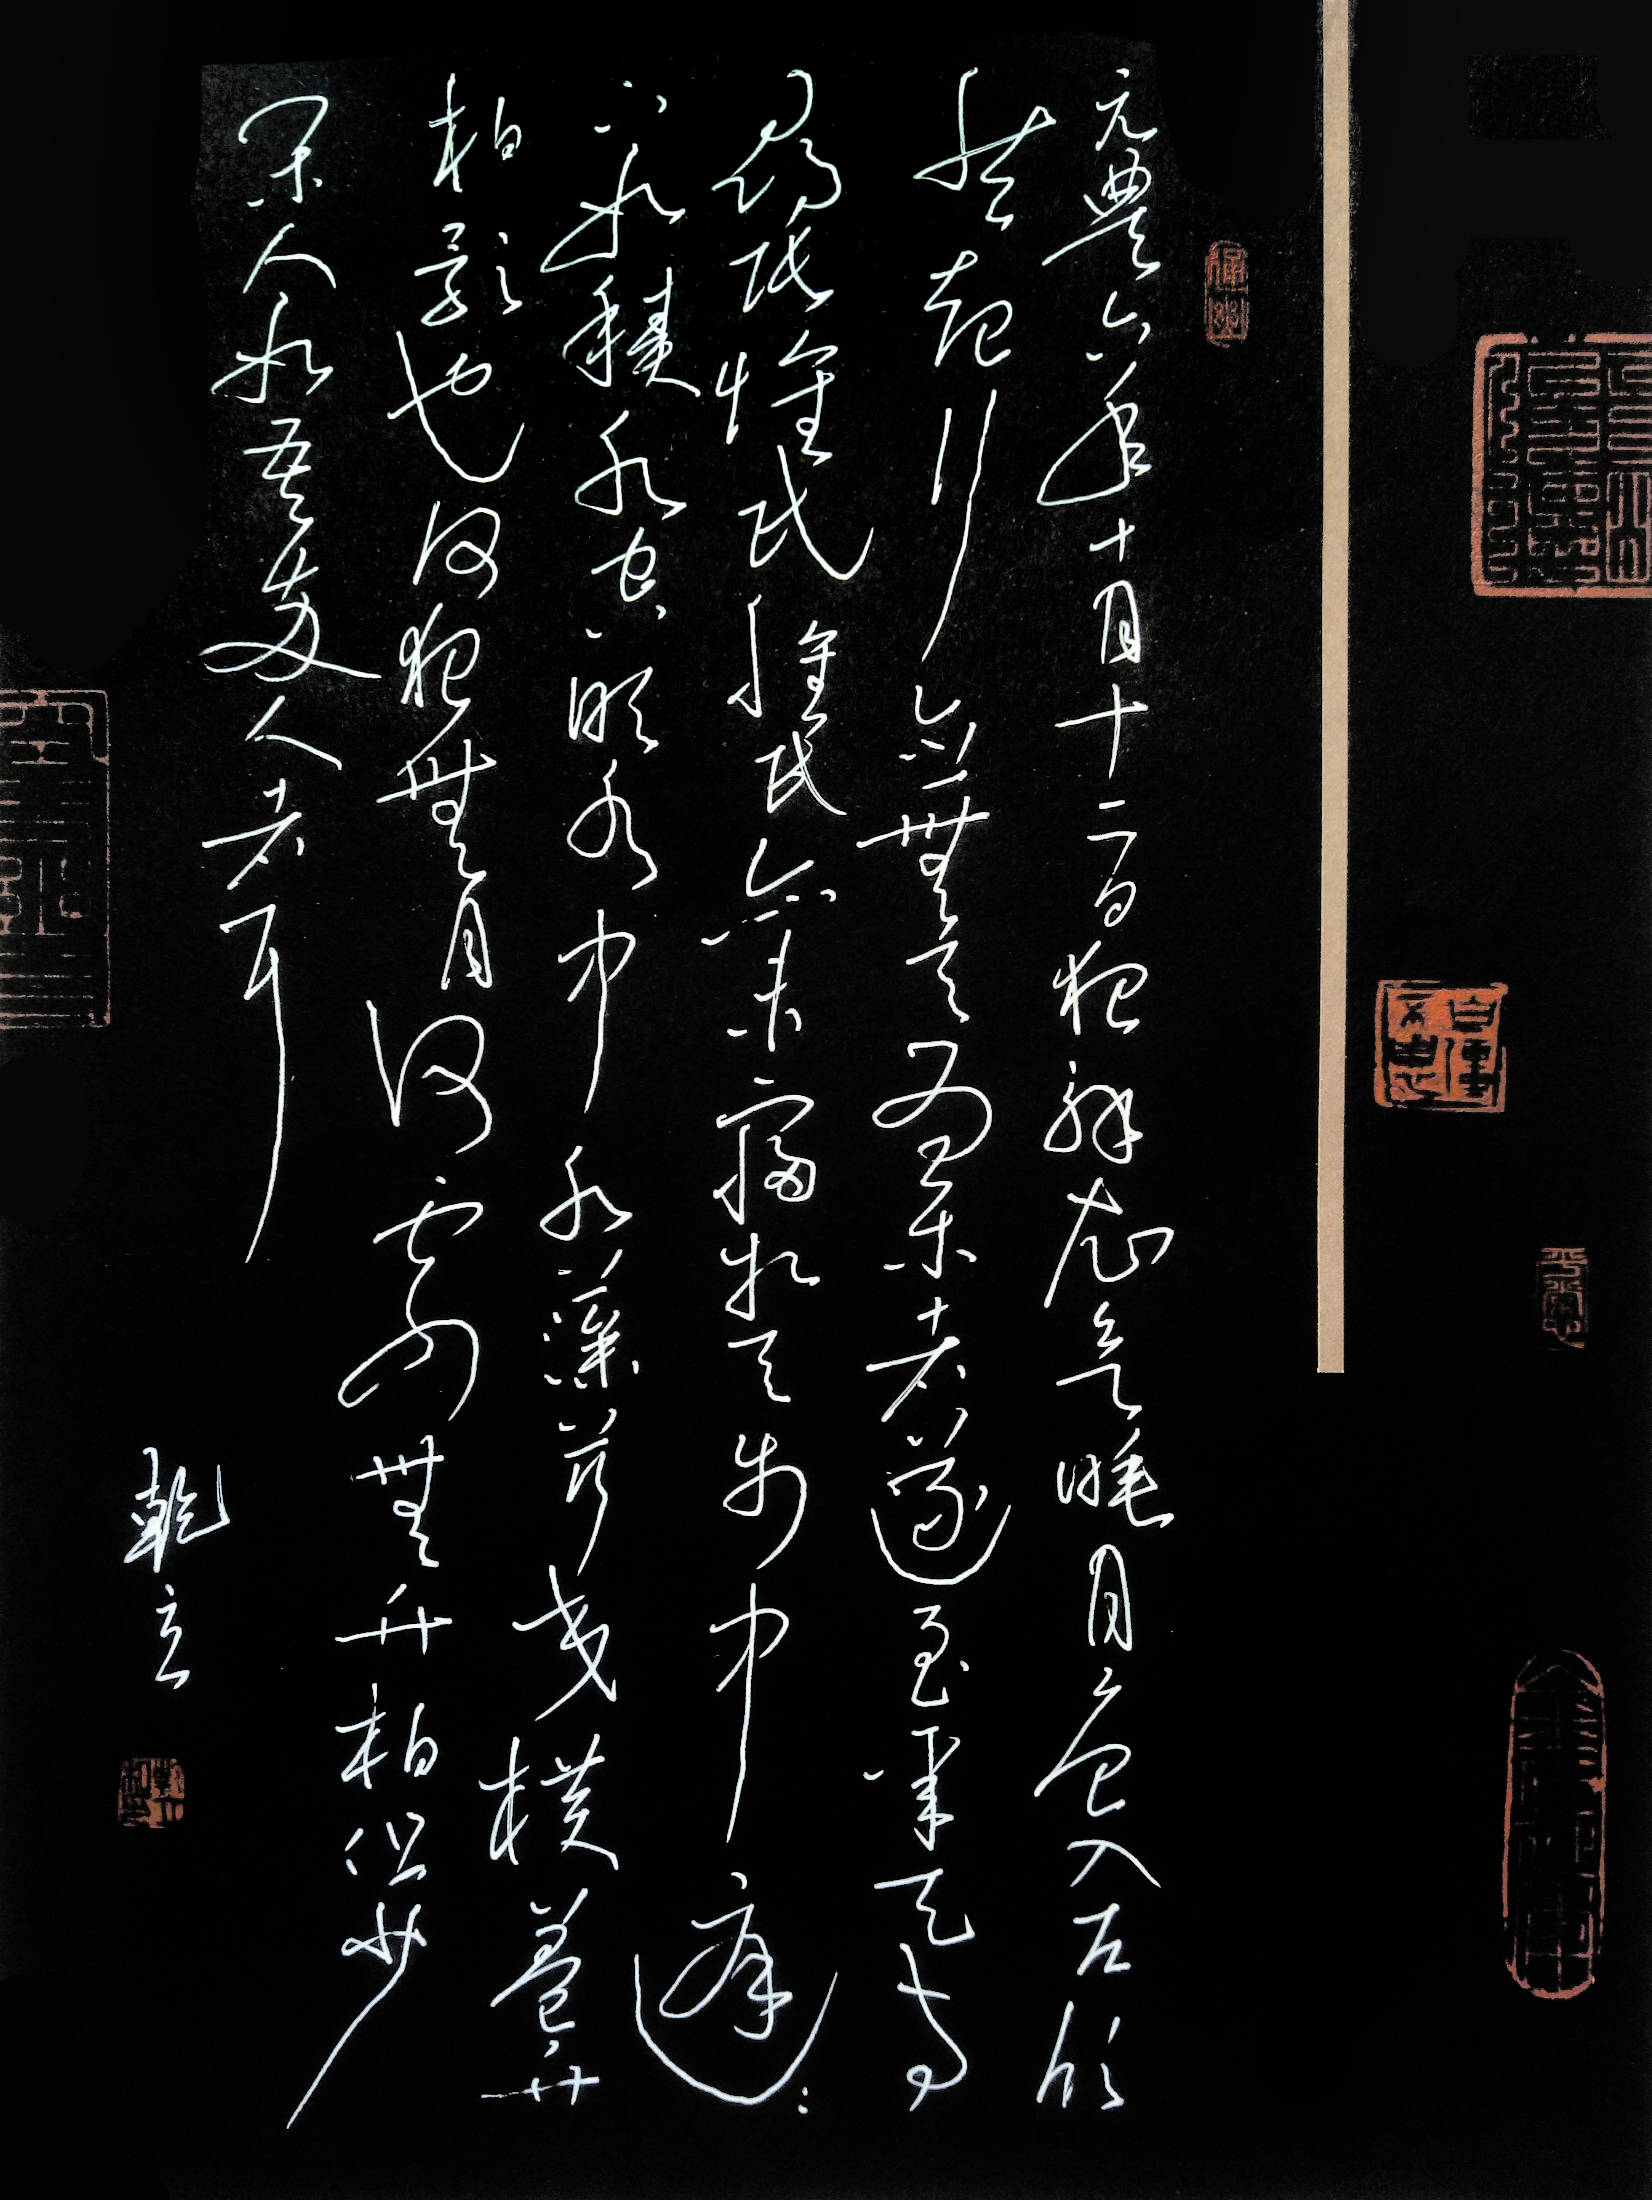 元豐六年十月十二日夜解衣欲睡月色入戶欣
然起行念無與為樂者遂至承天寺
尋張懷民懷民亦未寢相與步中庭〻
下如積水空明水中水藻荇交橫蓋竹
柏影也何夜無月何處無竹柏但少
閑人如吾兩人者耳
乾立